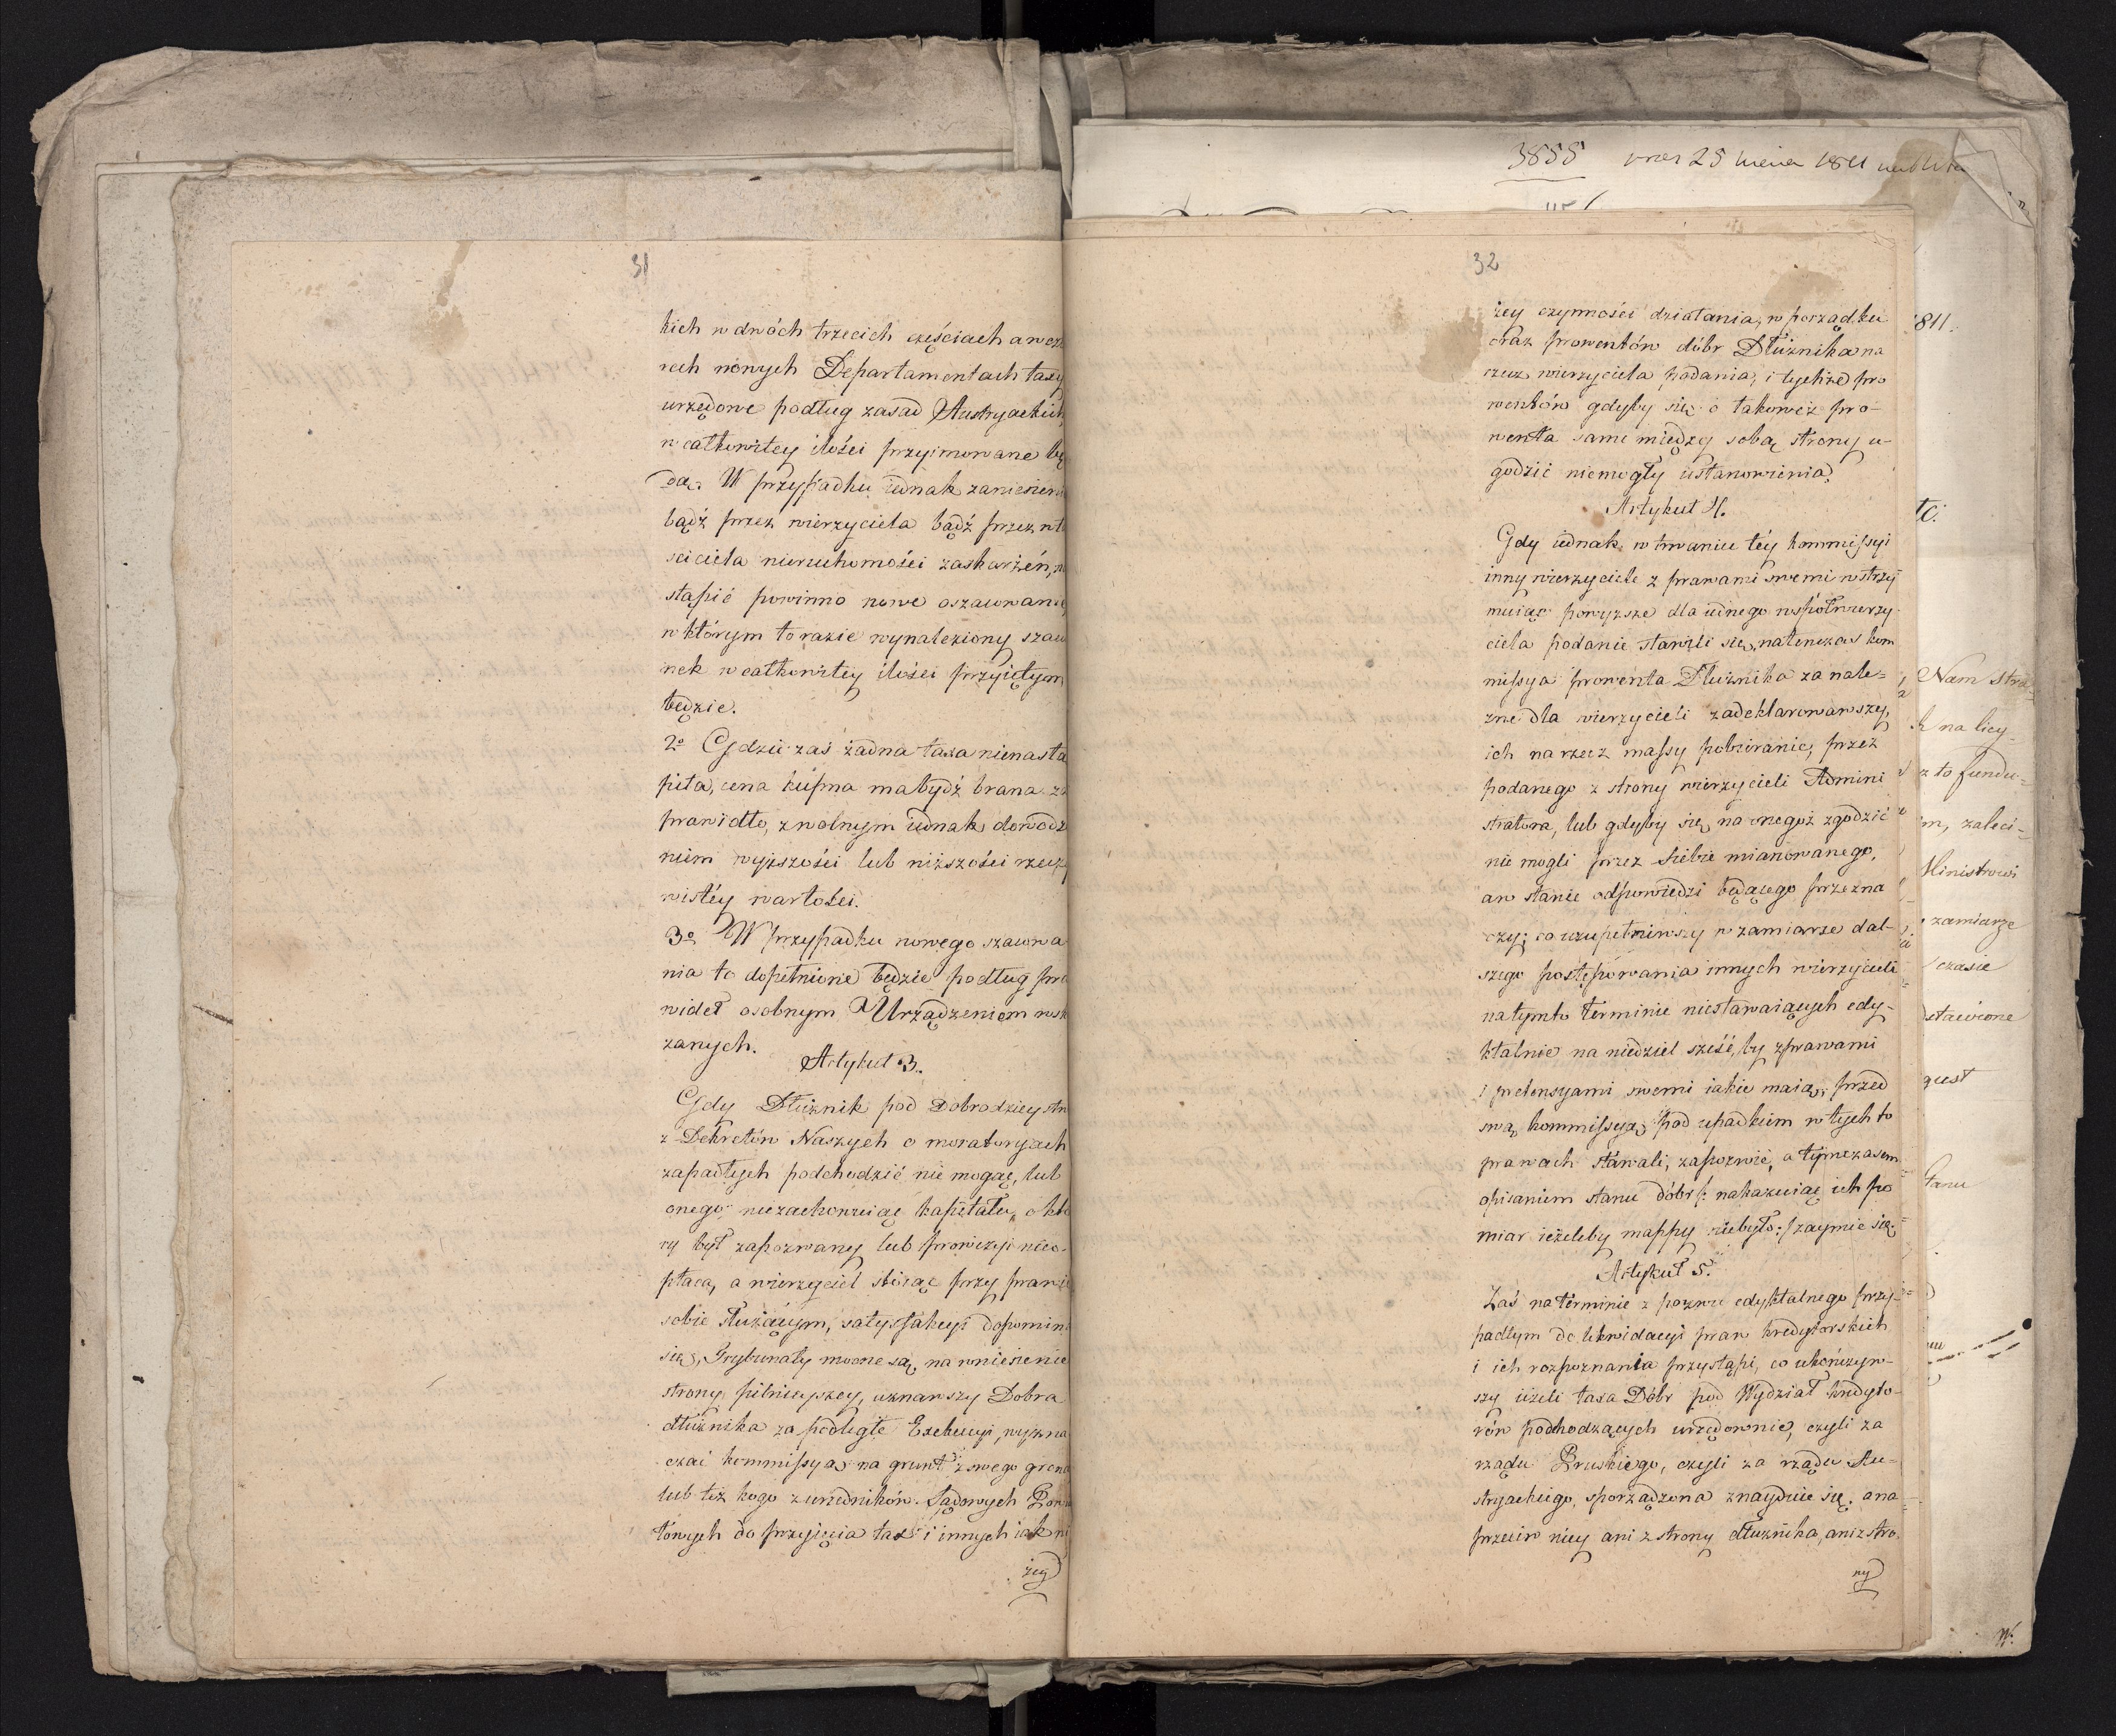 31
kich w dwóch trzecich częściach a w czte
rech nowych Departamentach taxy
urzędowe podług zasad Austryackich,
w całkowitey ilości przyimowane bę
dą. W przypadku iednak zaniesieni
bądź przez wierzyciela bądź przez wła
sciciela nieruchomości zaskarżeń, na
stąpić powinno nowe oszacowanie
w którym to razie wynaleziony szacu
nek w całkowitey ilości przyiętym
będzie.
2o Gdzie zaś żadna taxa nienastą
piła, cena kupna ma bydź brana za
prawidło, z wolnym iednak dowodze
niem wyższości lub niższości rzeczy
wistéy wartości.
3o W przypadku nowego szacowa
nia to dopełnione będzie podług pra
wideł osobnym Urządzeniem wska
zanych.
Artykuł 3.
Gdy Dłużnik pod Dobrodzieystw
z Dekretów Naszych o moratoryach
zapadłych podchodzić nie mogąc, lub
onego niezachowuiąc kapitału, o któ
ry był zapozwany lub prowizyi nieo-
płaca, a wierzyciel stoiąc przy prawie
sobie służącym, satysfakcyi dopomina
się, Trybunały mocne są, na wniesienie
strony pilnieyszey, uznawszy Dobra
dłużnika za podległe Exekucyi, wyzna
czać kommissyą na grunt z swego grona
lub też kogo z urzędników Sądowych Powia
towych do przyięcia tax i innych iak ni
żey
3855 25 1811
32
żey czynności działania, w porządku
oraz prowentów dóbr Dłużnika na
rzecz wierzyciela podania, i tychże pro
wentów gdyby się o takoweż pro-
wenta sami między sobą strony u-
godzić niemogły ustanowienia.
Artykuł 4.
Gdy iednak w trwaniu téy kommissyi
inny wierzyciele z prawami swemi wstrzy
muiąc powyższe dla iednego współwierzy
ciela podanie stawili się, natenczas kom
missya prowenta Dłużnika za nale-
żne dla wierzycieli zadeklarowawszy,
ich na rzecz massy pobieranie, przez
podanego z strony wierzycieli Admini
stratora, lub gdyby się na onegoż zgodzić
nie mogli przez siebie mianowanego,
a w stanie odpowiedzi będącego przezna
czy; co uzupełniwszy w zamiarze dal-
szego postępowania innych wierzycieli
na tymto terminie niestawaiących edy-
ktalnie na niedziel sześć, by z prawami
i pretensyami swemi iakie maią, przed
swą kommissyą pod upadkiem w tychto
prawach stawali, zapozwie, a tymczasem
opisaniem stanu dóbr /: nakazuiąc ich po
miar ieżeleby mappy niebyło :/ zaymie się.
Artykuł 5.
Zaś na terminie z pozwu edyktalnego przy-
padłym do likwidacyi praw kredytorskich
i ich rozpoznania przystąpi, co ukończyw-
szy ieżeli taxa Dóbr pod Wydział kredyto-
rów podhodzących urzędownie, czyli za
rządu Pruskiego, czyli za rządu Au-
stryackiego, sporządzona znayduie się. a na
przeciw niey ani z strony dłużnika, ani z stro
ny
1811.
Nam stra-
na licy-
z to fundu-
m, zaleci-
Ministrowi
zamiarze
czasie
dstawione
quest
W.